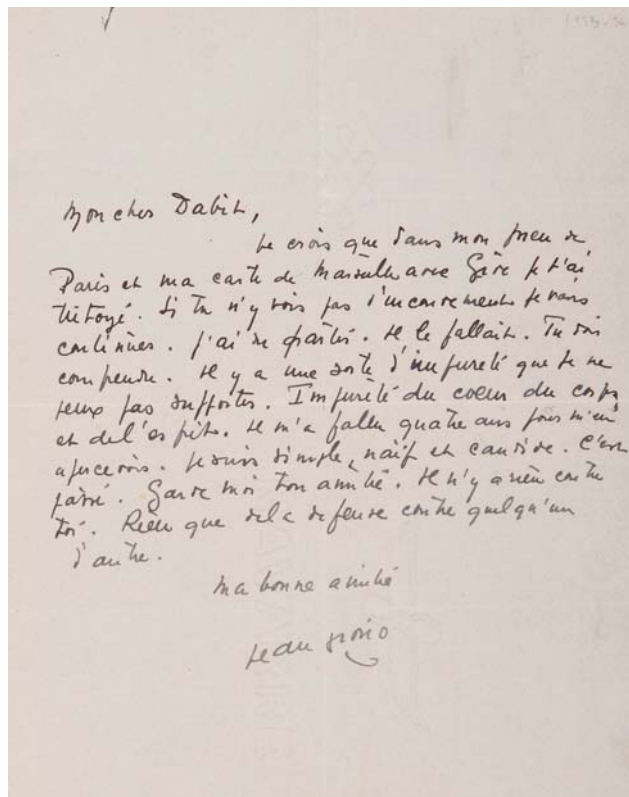 Mon cher Dabit,
Je crois que dans mon pneu de
Paris et ma carte de Marseille avec Gide je t'ai
tutoyé. Si tu n'y vois pas d'inconvenients je vais
continuer. J'ai du partir. Il le fallait. Tu dois
comprendre. Il y a une sorte d'impureté que je ne
peux pas supporter. Impureté du coeur du corps
et de l'esprit. Il m'a fallu quatre ans pour m'en
apercevoir. Je suis simple, naïf et candide. C'est
passé. Garde moi ton amitié. Il n'y a rien contre
toi. Rien que de la defense contre quelqu'un
d'autre.
Ma bonne amitié
Jean Giono